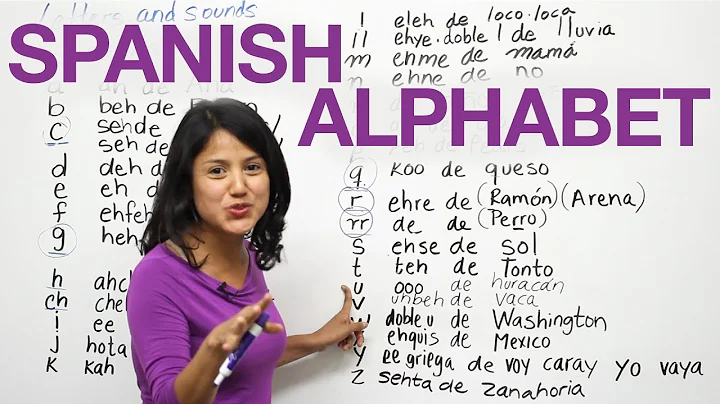 Letters and sounds
SPANISH
ALPHABET
b beh de
c seh de
seh de
d deh d
e eh d
f ehfeh
g heh
h ahc
ch che
! ee
j hota
k kah
l eleh de loco·loca
ll ehye·doble l de lluvia
m ehme de mamá
n ehne de no
q koo de queso
r ehre de (Ramón) (Arena)
rr de de (Perro)
s ehse de sol
t teh de Tonto
u ooo de huracán
v uhbeh de vaca
w doble u de Washington
enquis de Mexico
y ee griega de voy caray yo vaya
z sehta de zanahoria